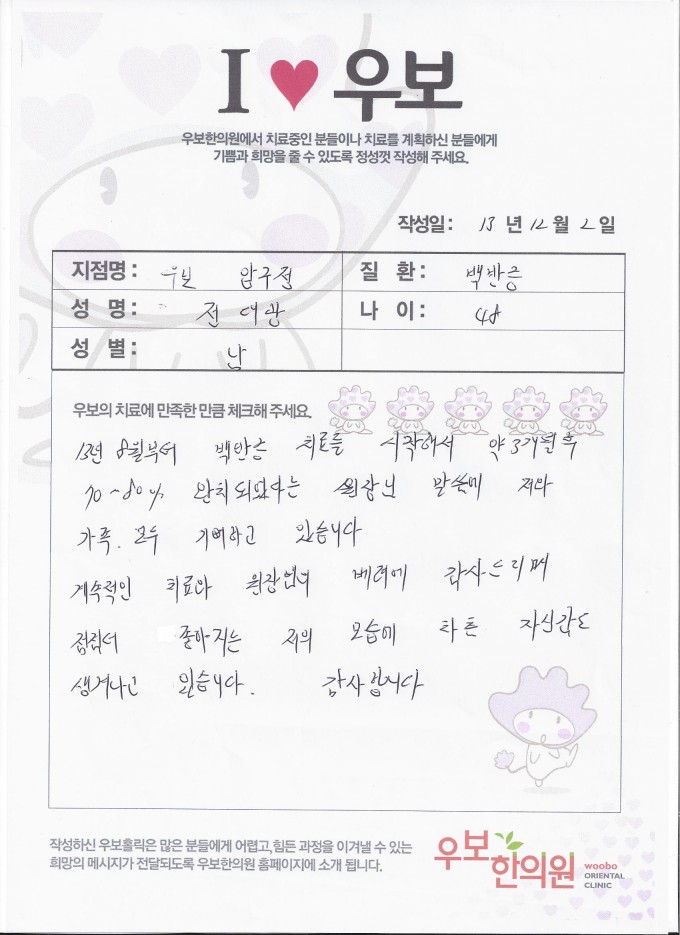 I ♥ 우보
우보한의원에서 치료중인 분들이나 치료를 계획하신 분들에게
기쁨과 희망을 줄 수 있도록 정성껏 작성해 주세요.
작성일 : 13 년 12 월 2 일
지점명 : 우보 압구정 질 환 : 백반증
성 명 : 전대광 나 이 : 48
성 별 : 남
우보의 치료에 만족한 만큼 체크해 주세요.
13년 8월부터 백반증 치료를 시작해서 약 3개월 후
70~80% 완치되었다는 원장님 말씀에 저와
가족 모두 기뻐하고 있습니다
계속적인 치료와 원장님의 배려에 감사드리며
점점더 좋아지는 저의 모습에 차츰 자신감도
생겨나고 있습니다. 감사합니다
작성하신 우보홀릭은 많은 분들에게 어렵고, 힘든 과정을 이겨낼 수 있는
희망의 메시지가 전달되도록 우보한의원 홈페이지에 소개 됩니다.
우보한의원 woobo
ORIENTAL
CLINIC